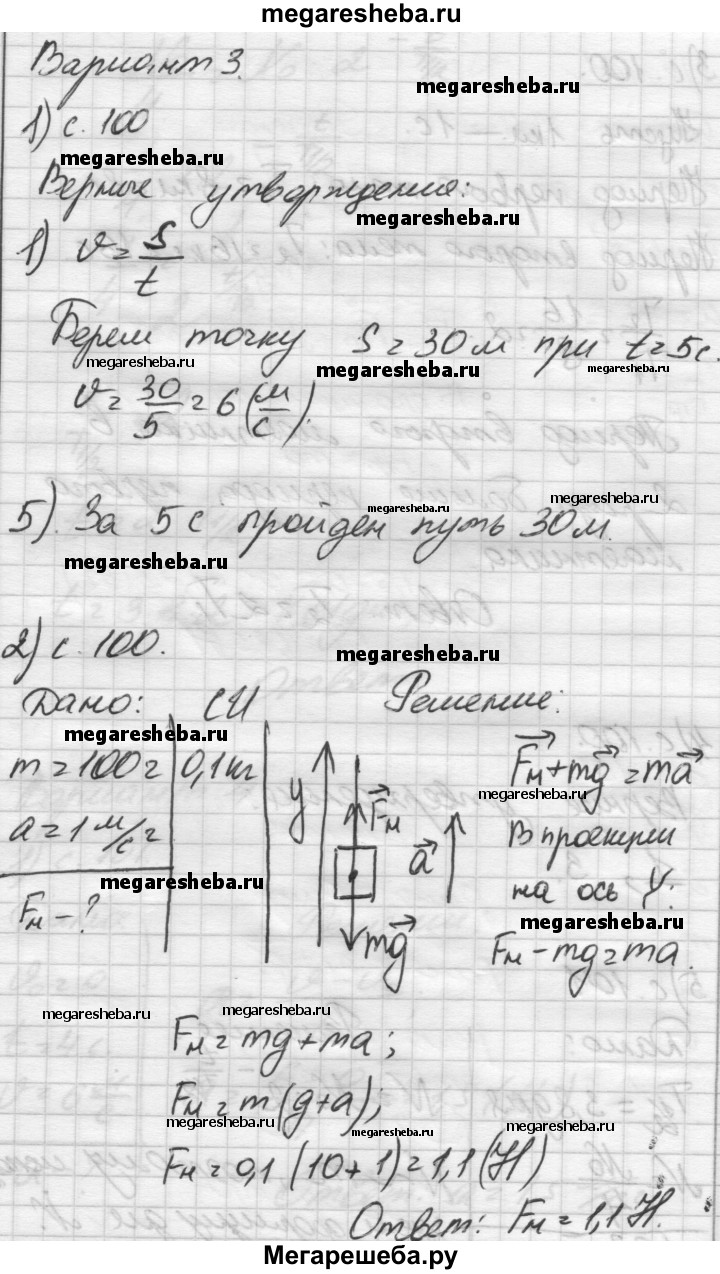 megaresheba.ru
Вариант 3.
megaresheba.ru
1) с. 100
megaresheba.ru
Верные утверждения:
megaresheba.ru
1) υ = S/t
Берем точку S = 30 м при t = 5 с.
megaresheba.ru megaresheba.ru megaresheba.ru
υ = 30/5 = 6 (м/с).
megaresheba.ru megaresheba.ru
5). За 5 с пройден путь 30 м.
megaresheba.ru
2) с. 100.
megaresheba.ru
Дано: СИ Решение:
megaresheba.ru
m = 100 г 0,1 кг
a = 1 м/с²
megaresheba.ru
Fн - ?
y Fн a mg
Fн + mg = ma
В проекции
на ось Y:
megaresheba.ru
Fн - mg = ma.
megaresheba.ru megaresheba.ru
Fн = mg + ma;
Fн = m(g + a);
megaresheba.ru megaresheba.ru megaresheba.ru
Fн = 0,1 (10 + 1) = 1,1 (Н)
Ответ: Fн = 1,1 Н.
Мегарешеба.ру